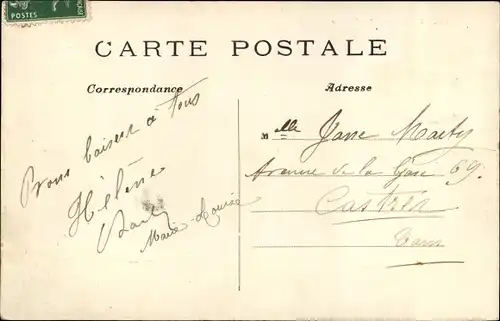 POSTES
CARTE POSTALE
Correspondance
Adresse
Bons baisers à tous
Hélène
Marie-Louise
Melle Jane Marty
Avenue de la Gare 69.
Castres
Tarn